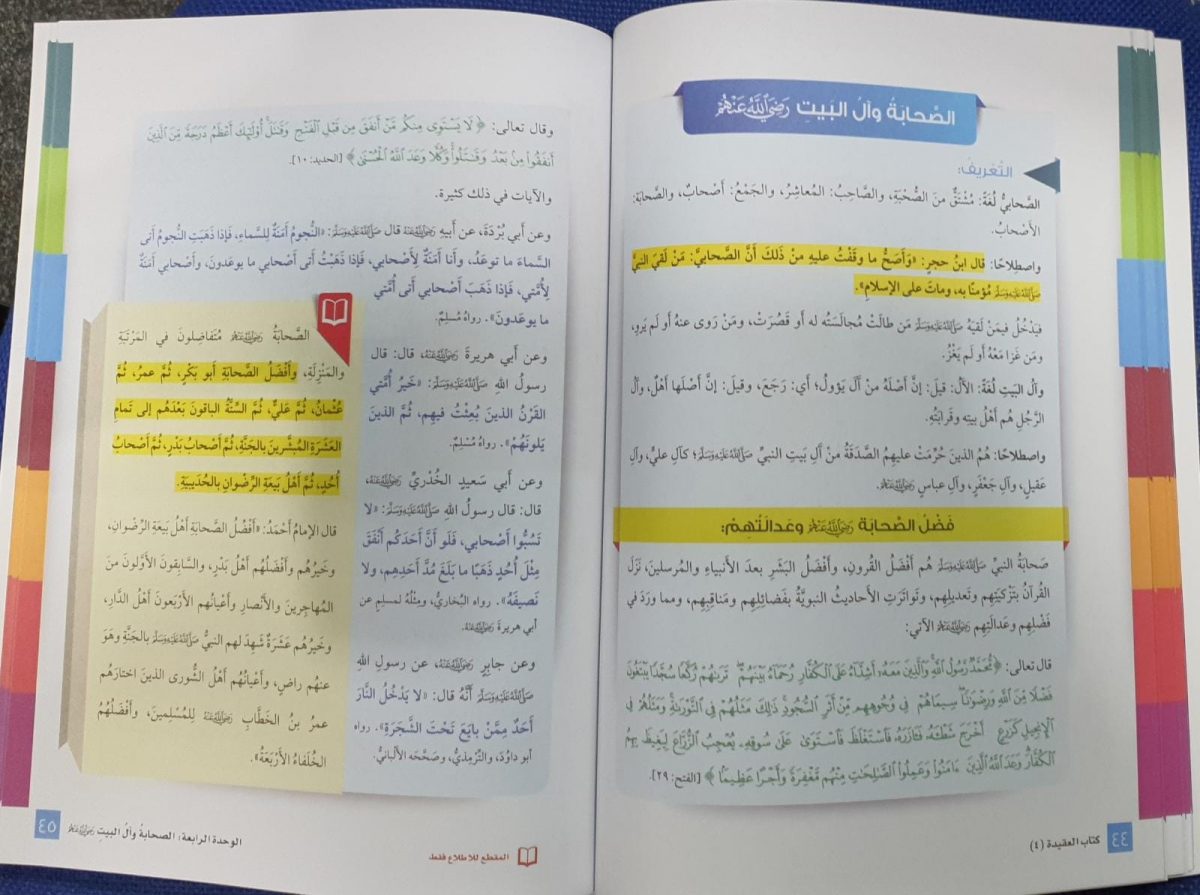 الصَّحابَةُ وآلُ البَيتِ رَضِيَ اللَّهُ عَنْهُمْ
التَّعْرِيفُ:
الصَّحابيُّ لُغَةً: مُشْتَقٌّ منَ الصُّحْبَةِ، والصَّاحِبُ: المُعاشِرُ، والجَمْعُ: أَصْحابٌ، والصَّحابَةُ:
الأَصْحابُ.
واصطِلاحًا: قال ابنُ حجرٍ: «وَأَصَحُّ ما وَقَفْتُ عليهِ منْ ذَلكَ أنَّ الصَّحابيَّ: مَنْ لَقِيَ النبيَّ
صَلَّى اللَّهُ عَلَيْهِ وَسَلَّمَ مُؤمنًا به، وماتَ على الإسلامِ».
فيَدْخُلُ فيمَنْ لَقيَهُ صَلَّى اللَّهُ عَلَيْهِ وَسَلَّمَ مَن طالَتْ مُجالَستُه له أو قَصُرَتْ، ومَنْ رَوى عنهُ أو لَم يَروِ،
ومَن غَزا مَعَهُ أو لَم يَغْزُ.
وآلُ البَيتِ لُغَةً: الآلُ: قيلَ: إنَّ أَصْلَهُ منْ آلَ يَؤولُ؛ أي: رَجَعَ، وقيلَ: إنَّ أَصْلَها أَهْلٌ، وآلُ
الرَّجُلِ هُم أَهْلُ بيتِه وقَرابَتُهِ.
واصطِلاحًا: هُمُ الذينَ حُرِّمَتْ عليهِمُ الصَّدَقَةُ منْ آلِ بَيتِ النبيِّ صَلَّى اللَّهُ عَلَيْهِ وَسَلَّمَ؛ كآلِ عليٍّ، وآلِ
عَقيلٍ، وآلِ جَعْفَرٍ، وآلِ عباسٍ رَضِيَ اللَّهُ عَنْهُمْ.
فَضْلُ الصَّحابَةِ رَضِيَ اللَّهُ عَنْهُمْ وعَدالَتُهُمْ:
صَحابَةُ النبيِّ صَلَّى اللَّهُ عَلَيْهِ وَسَلَّمَ هُم أَفْضَلُ القُرونِ، وأَفْضَلُ البَشَرِ بعدَ الأنبياءِ والمُرسلينَ، نَزَلَ
القُرآنُ بتَزْكيَتِهِم وتَعديلِهِم، وتَواتَرَتِ الأَحاديثُ النبويَّةُ بفَضائلِهِم ومَناقِبِهِم، ومما ورَدَ في
فَضْلِهِم وعَدالَتِهِم رَضِيَ اللَّهُ عَنْهُمْ الآتي:
قال تعالى: ﴿مُّحَمَّدٌ رَّسُولُ اللَّهِ وَالَّذِينَ مَعَهُ أَشِدَّاءُ عَلَى الْكُفَّارِ رُحَمَاءُ بَيْنَهُمْ تَرَاهُمْ رُكَّعًا سُجَّدًا يَبْتَغُونَ
فَضْلًا مِّنَ اللَّهِ وَرِضْوَانًا سِيمَاهُمْ فِي وُجُوهِهِم مِّنْ أَثَرِ السُّجُودِ ذَلِكَ مَثَلُهُمْ فِي التَّوْرَاةِ وَمَثَلُهُمْ فِي
الْإِنجِيلِ كَزَرْعٍ أَخْرَجَ شَطْأَهُ فَآزَرَهُ فَاسْتَغْلَظَ فَاسْتَوَى عَلَى سُوقِهِ يُعْجِبُ الزُّرَّاعَ لِيَغِيظَ بِهِمُ
الْكُفَّارَ وَعَدَ اللَّهُ الَّذِينَ ءَامَنُوا وَعَمِلُوا الصَّالِحَاتِ مِنْهُم مَّغْفِرَةً وَأَجْرًا عَظِيمًا﴾ [الفتح: ٢٩].
كتاب العقيدة (٤)
٤٤
وقال تعالى: ﴿لَا يَسْتَوِي مِنكُم مَّنْ أَنفَقَ مِن قَبْلِ الْفَتْحِ وَقَاتَلَ أُولَئِكَ أَعْظَمُ دَرَجَةً مِّنَ الَّذِينَ
أَنفَقُوا مِنْ بَعْدُ وَقَاتَلُوا وَكُلًّا وَعَدَ اللَّهُ الْحُسْنَى﴾ [الحديد: ١٠].
والآيات في ذلك كثيرة.
وعن أبي بُرْدَةَ، عن أبيهِ رَضِيَ اللَّهُ عَنْهُ قال: قال صَلَّى اللَّهُ عَلَيْهِ وَسَلَّمَ: «النُّجومُ أَمَنَةٌ لِلسَّماءِ، فَإذا ذَهَبَتِ النُّجومُ أتى
السَّماءَ ما تُوعَدُ، وأنا أَمَنَةٌ لِأَصْحابي، فَإذا ذَهَبْتُ أتى أَصْحابي ما يوعَدونَ، وأَصْحابي أَمَنَةٌ
لِأُمَّتي، فَإذا ذَهَبَ أَصْحابي أتى أُمَّتي
ما يوعَدونَ». رواهُ مُسْلِمٌ.
وعن أبي هريرةَ رَضِيَ اللَّهُ عَنْهُ، قال: قال
رسولُ اللهِ صَلَّى اللَّهُ عَلَيْهِ وَسَلَّمَ: «خَيرُ أُمَّتي
القَرْنُ الذينَ بُعِثْتُ فيهِم، ثُمَّ الذينَ
يَلونَهُمْ». رواهُ مُسْلِمٌ.
وعن أَبي سَعيدٍ الخُدْريِّ رَضِيَ اللَّهُ عَنْهُ،
قال: قال رسولُ اللهِ صَلَّى اللَّهُ عَلَيْهِ وَسَلَّمَ: «لا
تَسُبُّوا أَصْحابي، فَلَو أَنَّ أَحَدَكُم أَنْفَقَ
مِثْلَ أُحُدٍ ذَهَبًا ما بَلَغَ مُدَّ أَحَدِهِم، ولا
نَصيفَهُ». رواه البُخاريُّ، ومِثْلُهُ لمسلمٍ عن
أبي هريرةَ رَضِيَ اللَّهُ عَنْهُ.
وعن جابرٍ رَضِيَ اللَّهُ عَنْهُ، عن رسولِ اللهِ
صَلَّى اللَّهُ عَلَيْهِ وَسَلَّمَ أَنَّهُ قال: «لا يَدْخُلُ النَّارَ
أَحَدٌ مِمَّنْ بايَعَ تَحْتَ الشَّجَرَةِ». رواه
أبو داوُدَ، والتِّرمِذيُّ، وصَحَّحَه الألبانيُّ.
الصَّحابَةُ رَضِيَ اللَّهُ عَنْهُمْ مُتَفاضِلونَ في المَرْتَبَةِ
والمَنْزِلَةِ، وأَفْضَلُ الصَّحابَةِ أبو بَكْرٍ، ثُمَّ عمرُ، ثُمَّ
عُثْمانُ، ثُمَّ عَليٌّ، ثُمَّ السِّتَّةُ الباقونَ بَعْدَهُم إلى تَمامِ
العَشَرَةِ المُبَشَّرينَ بالجَنَّةِ، ثُمَّ أَصْحابُ بَدْرٍ، ثُمَّ أَصْحابُ
أُحُدٍ، ثُمَّ أَهْلُ بَيعَةِ الرِّضْوانِ بالحُدَيبيَةِ.
قال الإمامُ أَحْمَدُ: «أَفْضَلُ الصَّحابَةِ أَهْلُ بَيعَةِ الرِّضْوانِ،
وخَيرُهُم وأَفْضَلُهُم أَهْلُ بَدْرٍ، والسَّابِقونَ الأَوَّلونَ منَ
المُهاجِرينَ والأَنْصارِ وأَعْيانُهم الأَرْبَعونَ أَهْلُ الدَّارِ،
وخَيرُهُم عَشَرَةٌ شَهِدَ لهم النبيُّ صَلَّى اللَّهُ عَلَيْهِ وَسَلَّمَ بالجَنَّةِ وهُوَ
عنهم راضٍ، وأَعْيانُهُم أَهْلُ الشُّورى الذينَ اختارَهُم
عمرُ بنُ الخَطَّابِ رَضِيَ اللَّهُ عَنْهُ لِلمُسْلِمينَ، وأَفْضَلُهُمُ
الخُلَفاءُ الأَرْبَعَةُ».
المقطع للاطلاع فقط
الوحدة الرابعة: الصحابةُ وآلُ البيتِ رَضِيَ اللَّهُ عَنْهُمْ
٤٥